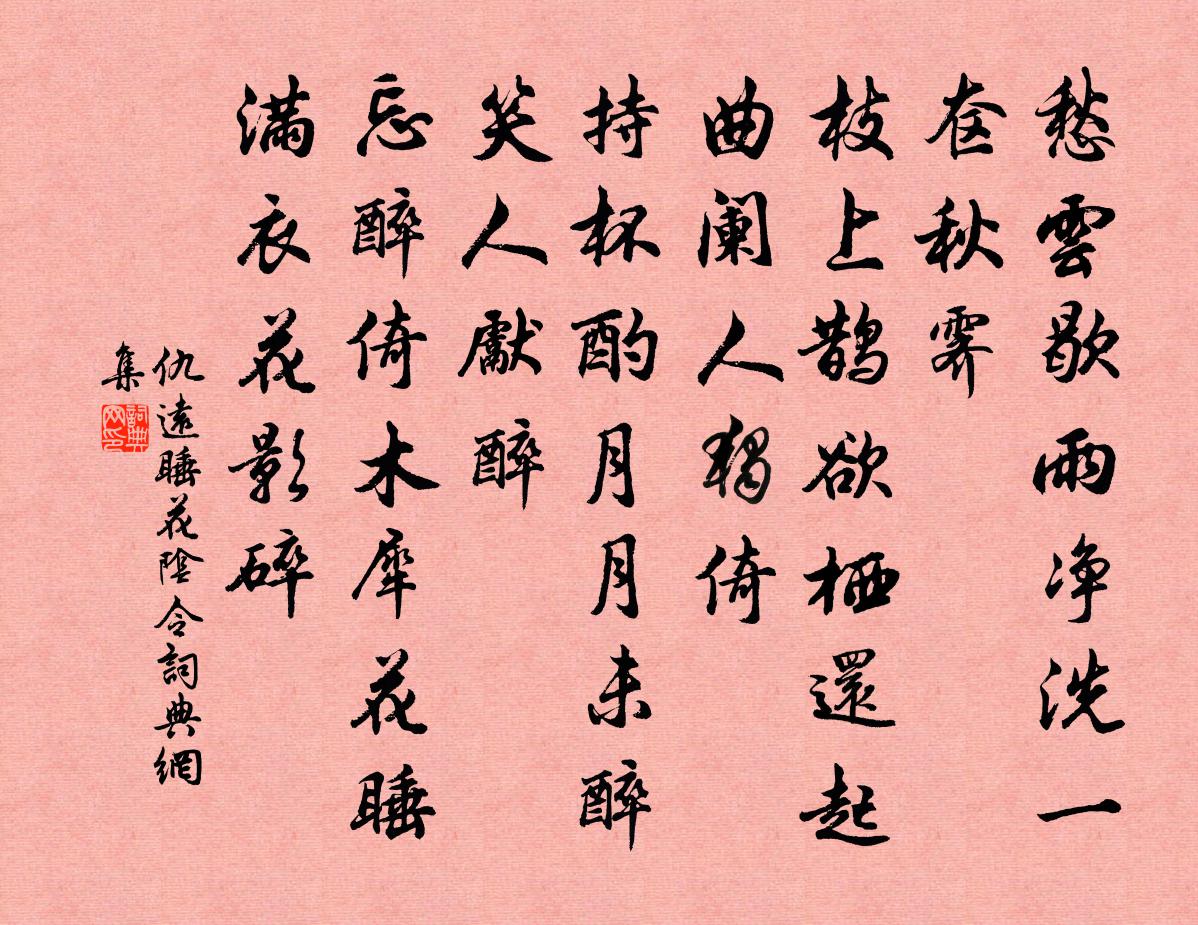 愁雲歇雨净洗一
奁秋霽
枝上鵲欲栖還起
曲闌人獨倚
持杯酌月月未醉
笑人獻醉
忘醉倚木犀花睡
滿衣花影碎
仇遠睡花陰令詞典網
集
詞典网印